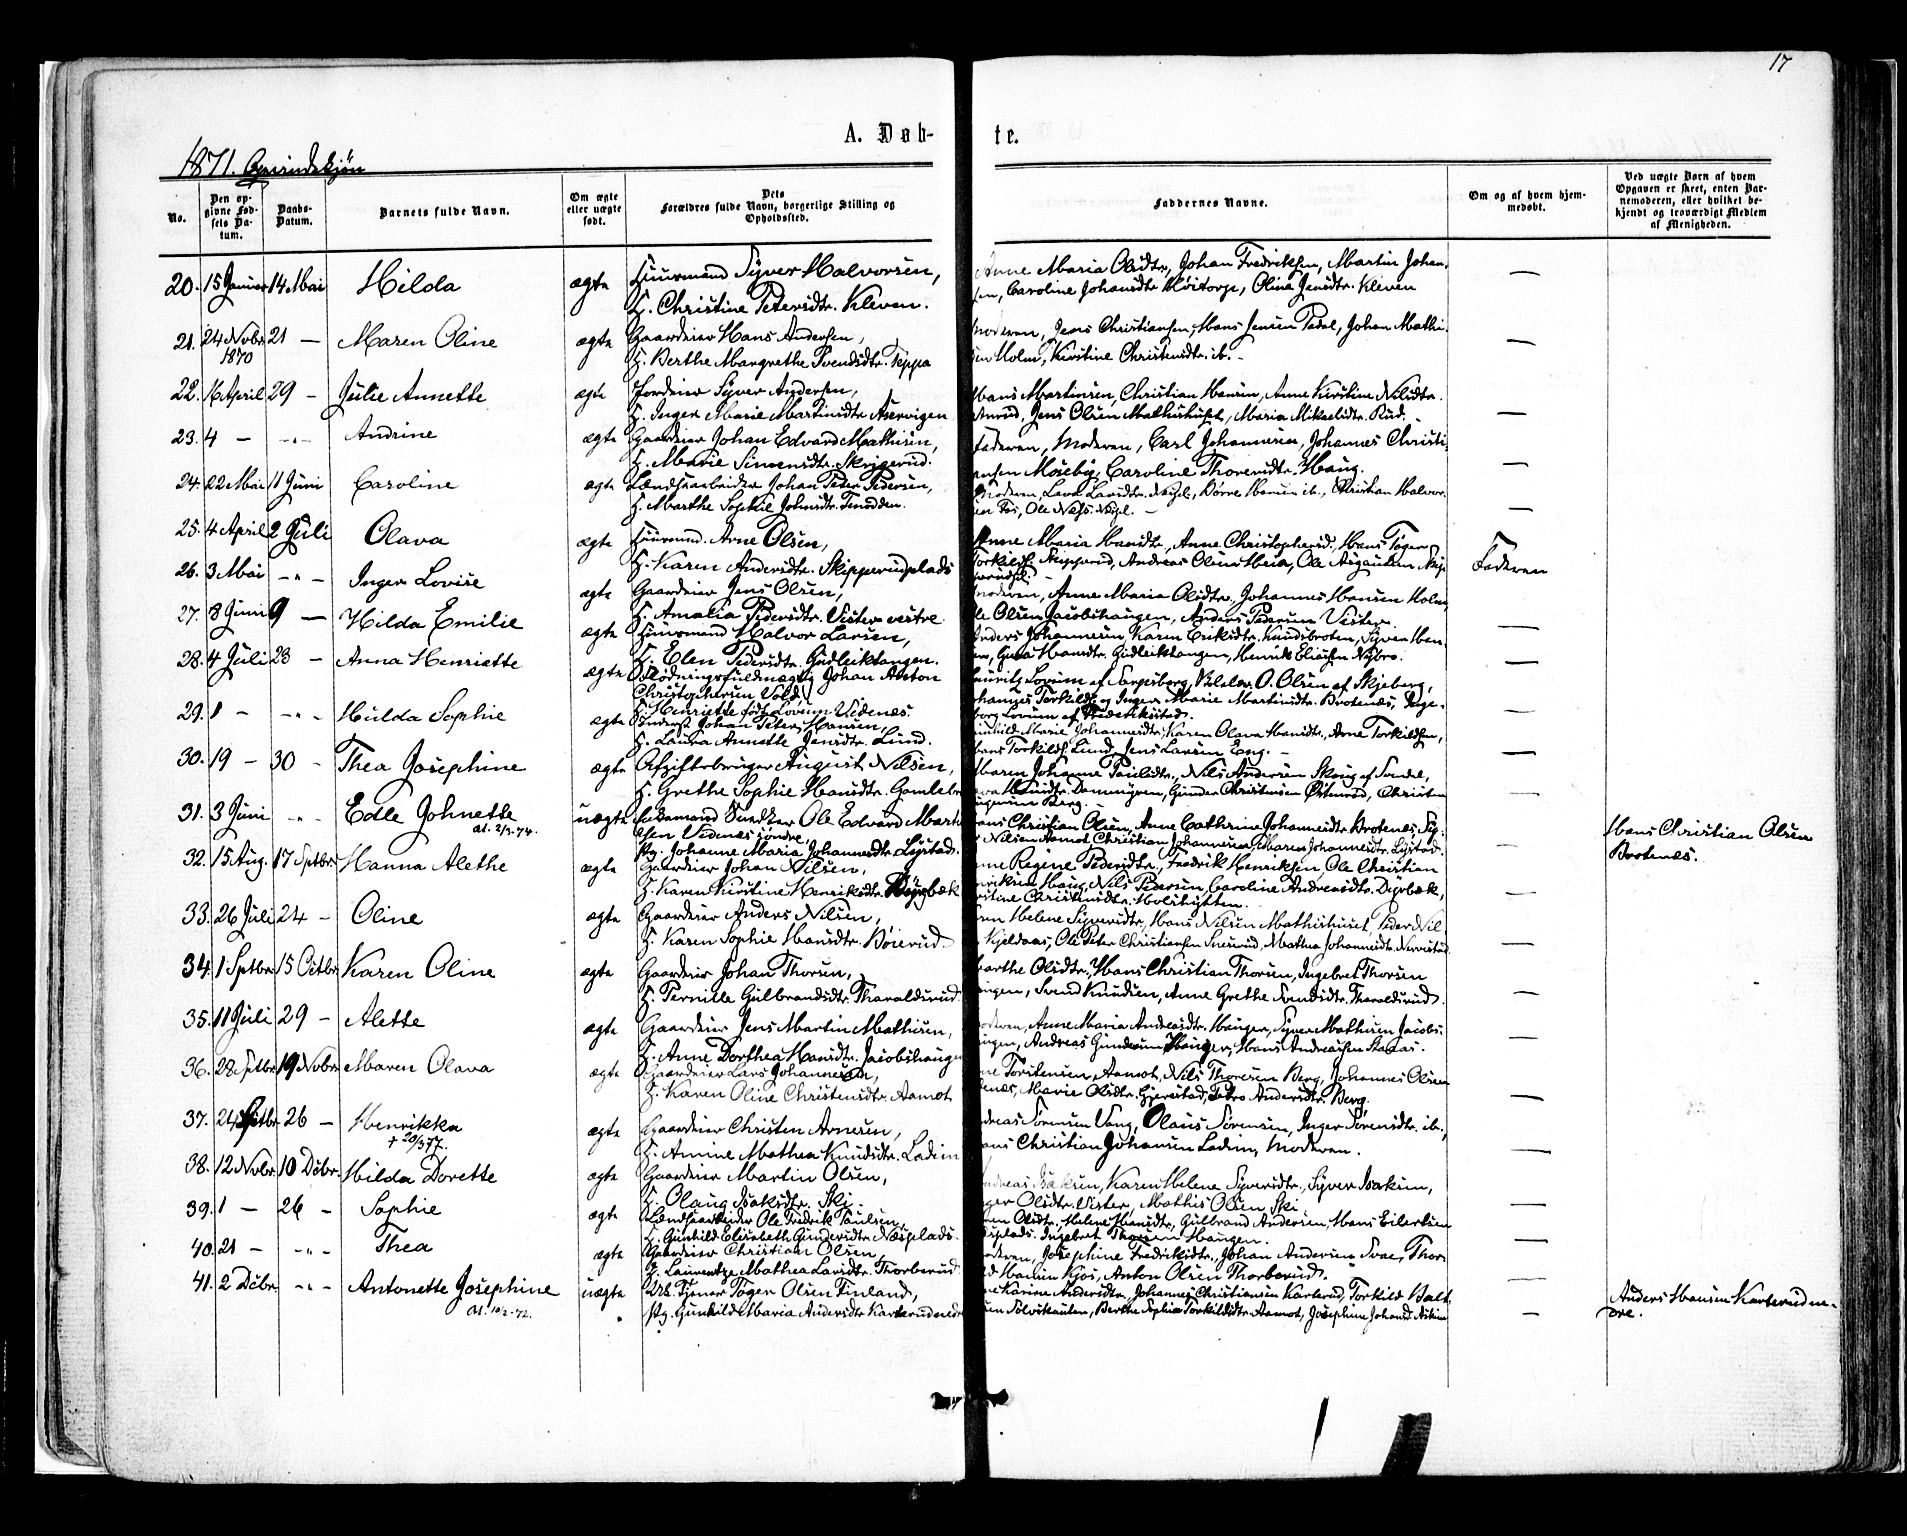 17
A. Døb-
te.
1871. Qvindekjøn
No.
Den op-
givne Fød-
sels Da-
tum.
Daabs-
Datum.
Barnets fulde Navn.
Om ægte
eller uægte
født.
Dets
Forældres fulde Navn, borgerlige Stilling og
Opholdssted.
Faddernes Navne.
Om og af hvem hjem-
medøbt.
Ved uægte Børn af hvem
Opgaven er skeet, enten Bar-
nemoderen, eller hvilket be-
kjendt og troværdigt Medlem
af Menigheden.
20. 15 Januar 14 Mai Hilda ægte Huusmand Syver Halvorsen,
H. Christine Petersdtr. Kleven.
Anne Maria Olsdtr, Johan Fredriksen, Martin Johan-
sen, Caroline Johansdtr Høitorp, Oline Jensdtr. Kleven —
21. 24 Novbr 1870 21 — Maren Oline ægte Gaardeier Hans Andersen,
H. Berthe Margrethe Svendsdtr. Teppa
Moderen, Jens Christiansen, Hans Jensen Tedal, Johan Mathi-
sen Holm, Kirstine Christensdtr. ib. —
22. 16 April 29 — Julie Annette ægte Jordeier Syver Andersen,
H. Inger Marie Martinsdtr
Hans Martinsen, Christian Hansen, Anne Kirstine Nilsdtr.
Jens Olsen Mathishuset, Maria Mikkelsdtr. Rud. —
23. 4 — -"- Andrine ægte Gaardeier Johan Edvard Mathisen,
H. Marie Simensdtr. Skrigerud.
Faderen, Moderen, Carl Johannesen, Johannes Christi-
ansen Moseby, Caroline Thoresdtr. Haug. —
24. 22 Mai 11 Juni Caroline ægte Landsarbeider Johan Peter Pedersen,
H. Marthe Sophie Johnsdtr.
Moderen, Lava Larsdtr. Børre Hansen ib., Christian Halvor-
sen —
25. 4 April 2 Juli Olava ægte Huusmd. Arne Olsen,
H. Karen Andersdtr. Skipperudplads
Anne Maria Hansdtr, Anne Christophersd. Hans Tøger
Torkilds. Skipperud, Andreas Olsen Heia, Ole Faderen
26. 3 Mai -"- Inger Lovise ægte Gaardeier Jens Olsen,
H. Amalia Pedersdtr. Vister vestre
Moderen, Anne Maria Olsdtr. Johannes Hansen Holm,
Ole Olsen Jacobshaugen, Anders Pedersen Vister. —
27. 8 Juni 9 — Hilda Emilie ægte Huusmand Halvor Larsen,
H. Elen Pedersdtr. Gudleiktangen.
Anders Johannesen, Karen Eriksdtr. Knudsbroten, Syver Han-
sen, Hansdtr. Gudleiktangen, Henrik Eliassen Nybro. —
28. 4 Juli 23 — Anna Henriette ægte Flødningsfuldmægtig Johan Anton
Christophersen Vold,
H. Henriette født Lorum Videnæs.
Lauritz Lorum af Sarpsborg, O. Olsen af Skjeberg,
Johannes Torkilds. og Inger Marie Martinsdtr. Brotenæs,
Lorum af Fredrikstad. —
29. 1 — -"- Hulda Sophie ægte Johan Peter Hansen,
H. Laura Annette Jensdtr. Lund.
Gunhild Marie Johannesdtr, Karen Olava Hansdtr, Arne Torkildsen,
Hans Torkilds. Lund, Jens Larsen Eng. —
30. 19 — 30 — Thea Josephine ægte Afgiftsbruger August Nilsen,
H. Grethe Sophie Hansdtr.
Maren Johanne Paulsdtr., Nils Andersen Skoug af
Hansdtr. Dammyren, Gunder Christensen Østenrød, Christen
Berg. —
31. 3 Juni -"- Edle Johnette at. 2/3-74. uægte Ungkarl Snedker Ole Edvard Mart-
sen Videnæs søndre,
Pg. Johanne Maria Johannesdtr. Lystad.
Hans Christian Olsen, Anne Cathrine Johannesdtr Brotenæs,
Nilsen Aamot, Christian Johannesen, Maren Johannesdtr. Lystad. —
Hans Christian Olsen
Brotenæs.
32. 15 Aug. 17 Sptbr Hanna Alethe ægte Gaardeier Johan Nilsen,
H. Karen Kirstine Henriksdtr. Dyrbæk
Anne Regine Pedersdtr, Fredrik Henriksen, Ole Christian
Henriksen Haug, Nils Pedersen, Caroline Andreasdtr. Dyrbæk,
Kirstine Christensdtr. Holshytten. —
33. 26 Juli 24 — Oline ægte Gaardeier Anders Nilsen,
H. Karen Sophie Hansdtr. Bøierud.
Karen Helene Syversdtr, Hans Nilsen Mathishuset, Peder Nil-
sen Kjeldaas, Ole Peter Christiansen Snesrud, Mathea Johannesdtr. —
34. 1 Sptbr. 15 Octbr. Karen Oline ægte Gaardeier Johan Thorsen,
H. Pernille Gulbrandsdtr. Tharaldsrud.
Marthe Olsdtr, Hans Christian Thorsen, Ingebret Thorsen
Haugen, Svend Knudsen, Anne Grethe Svendsdtr. Tharaldsrud. —
35. 11 Juli 29 — Alette ægte Gaardeier Jens Martin Mathisen,
H. Anne Dorthea Hansdtr. Jacobshaugen
Moderen, Anne Maria Andreasdtr. Haugen, Syver Mathisen Jacobs-
haugen, Andreas Gundersen Haugen, Hans Andreassen —
36. 28 Sptbr 19 Novbr. Maren Olava ægte Gaardeier Lars Johannesen,
H. Karen Oline Christensdtr. Aamot
Torstensen, Aamot, Nils Thoresen Berg, Johannes Olsen
Marie Olsdtr. Gjerestad, Petro Andersdtr. Berg. —
37. 24 Sptbr. 26 — Henrikka † 20/5 77. ægte Gaardeier Christen Arnesen,
H. Amine Mathea Knudsdtr. Ladim
Andreas Sørensen Vang, Olaus Sørensen, Inger Sørensdtr. ib.,
Hans Christian Johansen Ladim, Moderen. —
38. 12 Novbr. 10 Dcbr. Hilda Dorette ægte Gaardeier Martin Olsen,
H. Olaug Isaksdtr. Ski.
Andreas Isaksen, Karen Helene Syversdtr., Syver Isaksen,
Inger Olsdtr. Vister, Mathis Olsen Ski —
39. 1 — 26 — Sophie ægte Landsarbeider Ole Fredrik Paulsen,
H. Gunhild Elisabeth Gundersdtr. Næsplads.
Karen Olsdtr, Helene Hansdtr, Gulbrand Andersen, Hans Eilertsen
Næsplads, Ingebret Thorsen Haugen. —
40. 21 — -"- Thea ægte Gaardeier Christian Olsen,
H. Laurentze Mathea Larsdtr. Thorberud
Moderen, Josephine Fredriksdtr., Johan Andersen Svae, Thor-
Hansen Kjos, Anton Olsen Thorberud. —
41. 2 Dcbr. -"- Antonette Josephine at. 10/2-72. uægte Tjener Tøger Olsen Finland,
Pg. Gunhild Maria Andersdtr Karterud nedre
Karine Andersdtr., Johannes Christiansen Karterud, Torkild Balt-
Berthe Sophie Torkildsdtr. Aamot, Josephine Johansd. —
Anders Hansen Karterud ne-
dre.